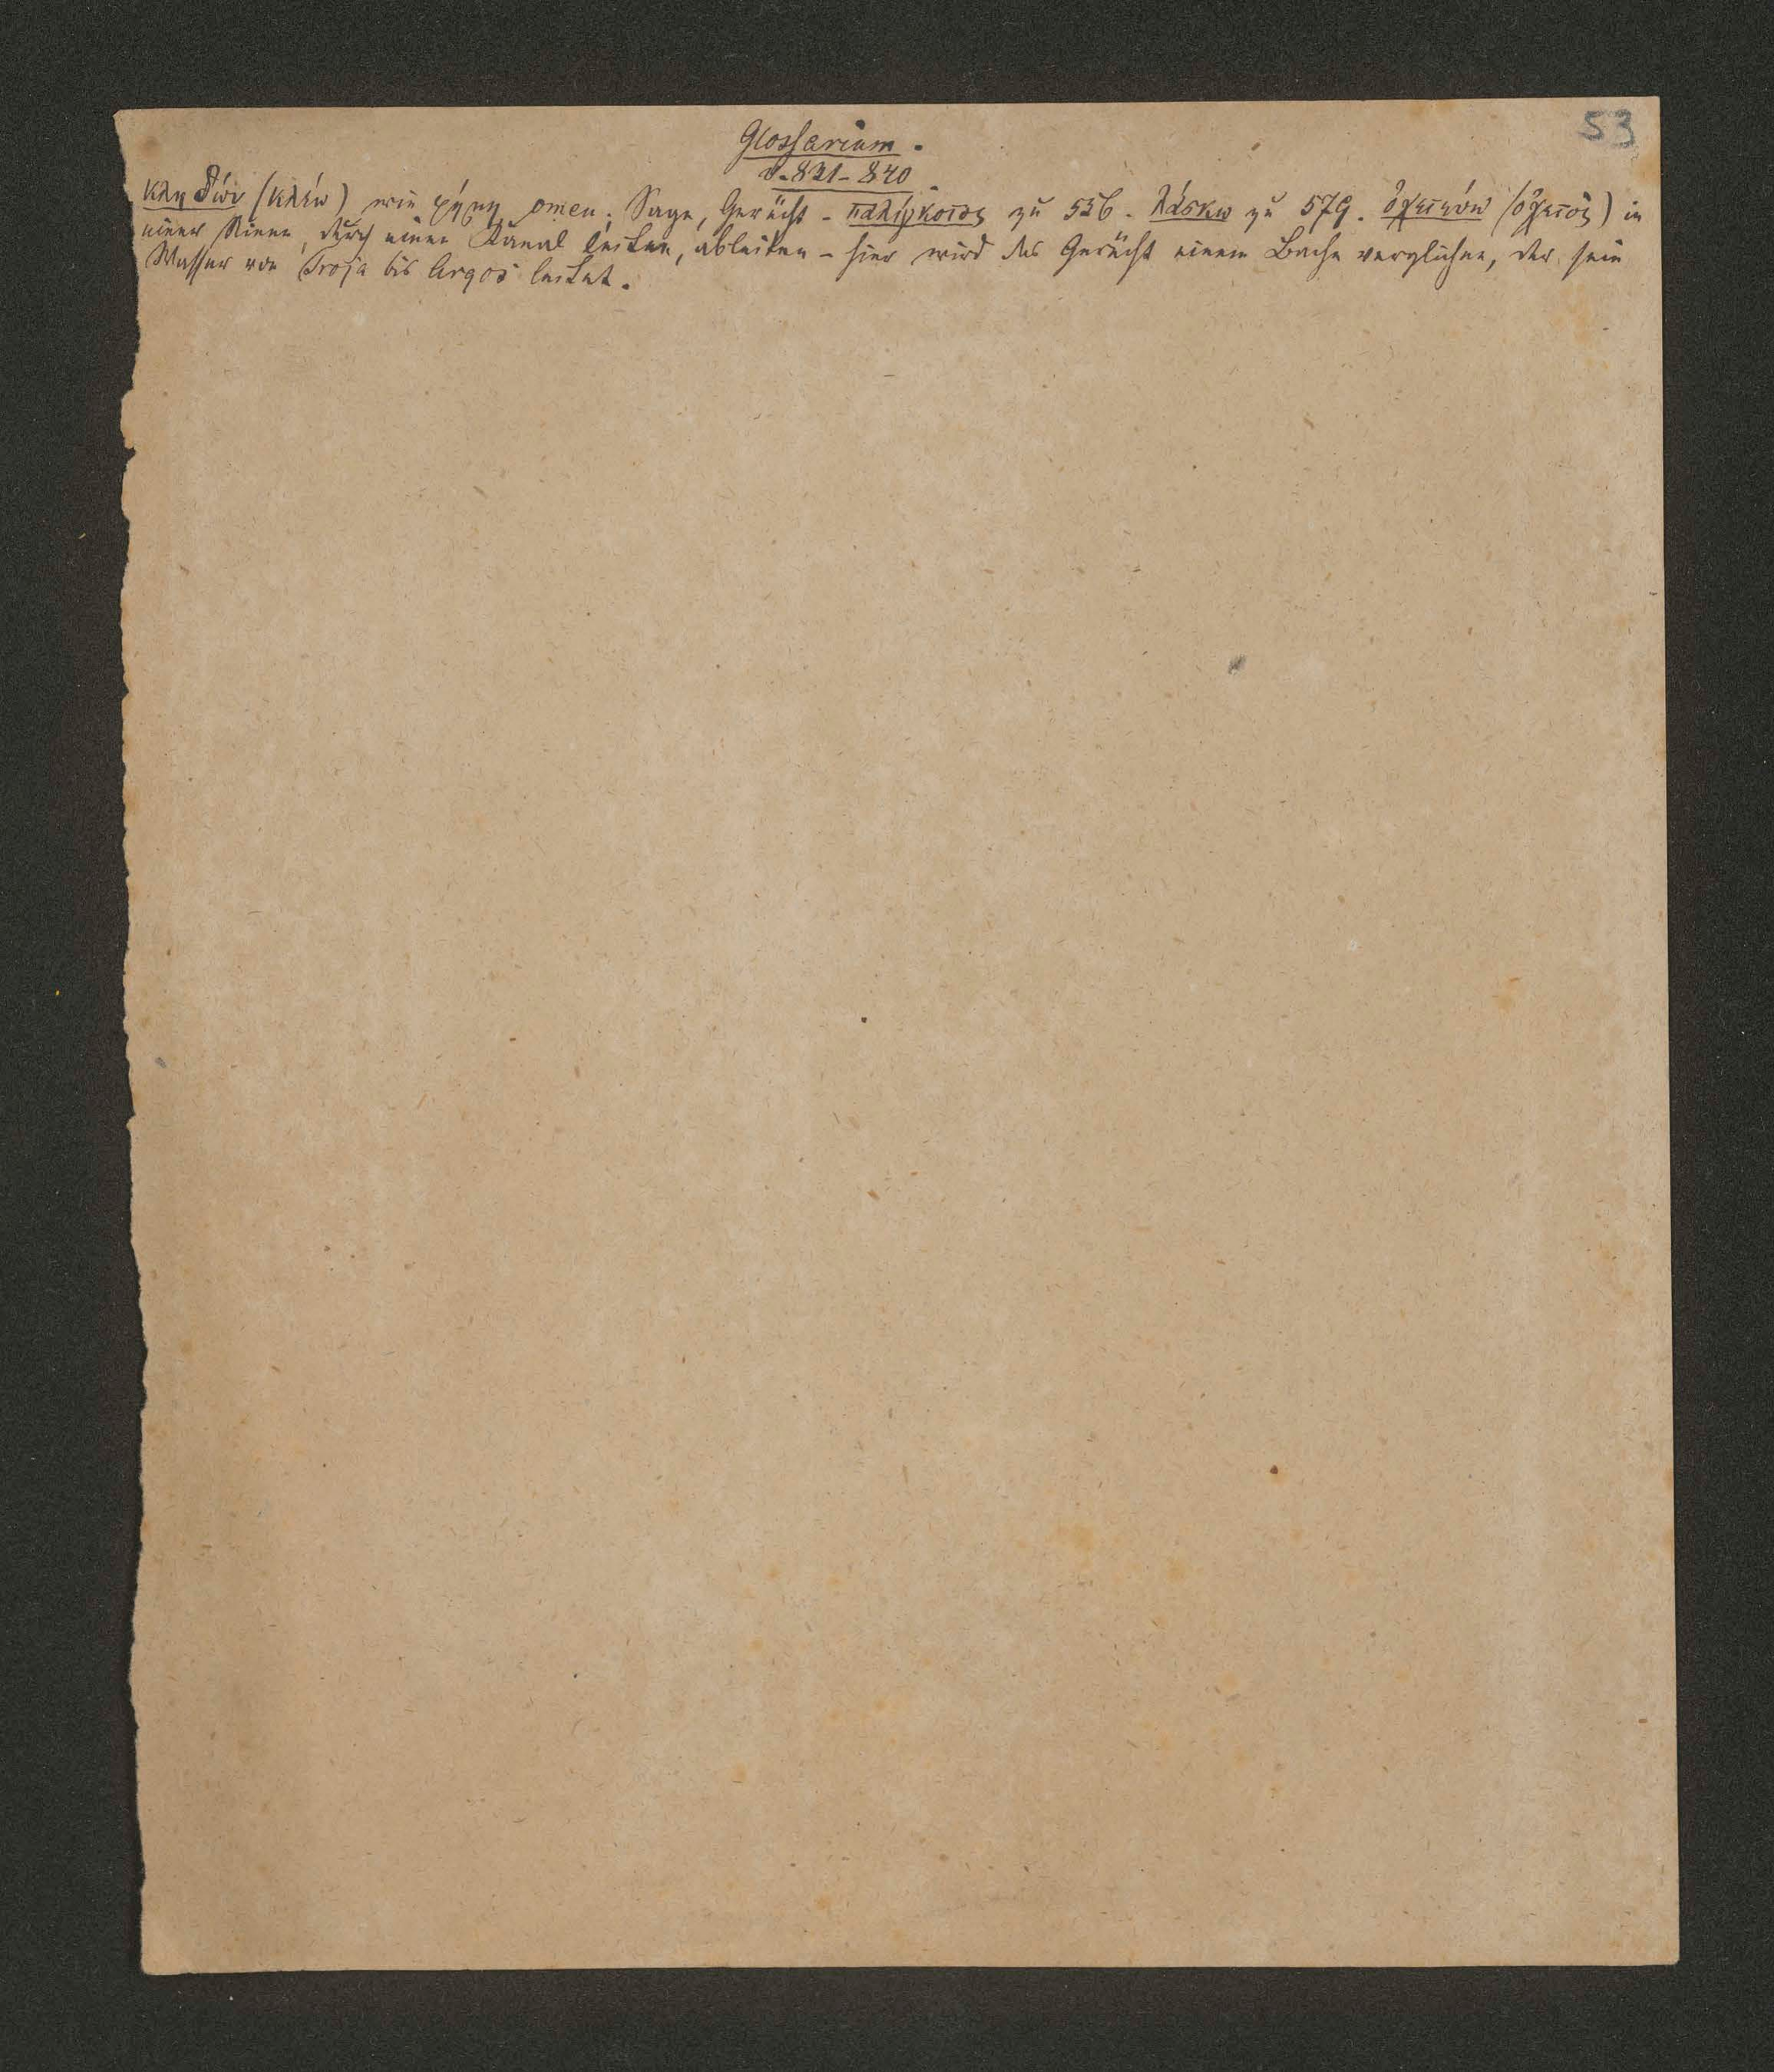 53
Glossarium.
V. 821-840
κληδών (κλέω) wie φήμη, omen; Sage, Gerücht - παλίγκοτος zu 536. λάσκω zu 579. ὀχετεύω (ὀχετὸς) in
einer Rinne, durch einen Kanal leiten, ableiten - hier wird das Gerücht einem Bache verglichen, der sein
Wasser von Troja bis Argos leitet.